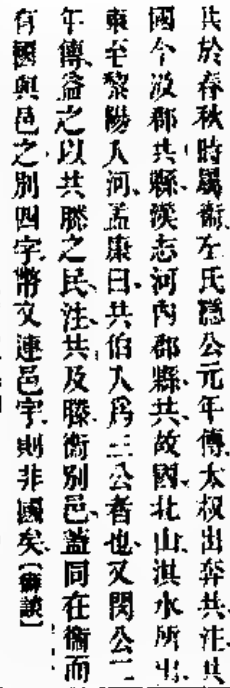 共於春秋時屬衞左氏隱公元年傳太叔出奔共注共
國今汲郡共縣漢志河內郡縣共故國北山淇水所出
東至黎陽入河孟康曰共伯入爲三公者也又閔公二
年傳益之以共滕之民注共及滕衞別邑蓋同在衞而
有國與邑之別四字幣文連邑字則非國矣〔癖談〕